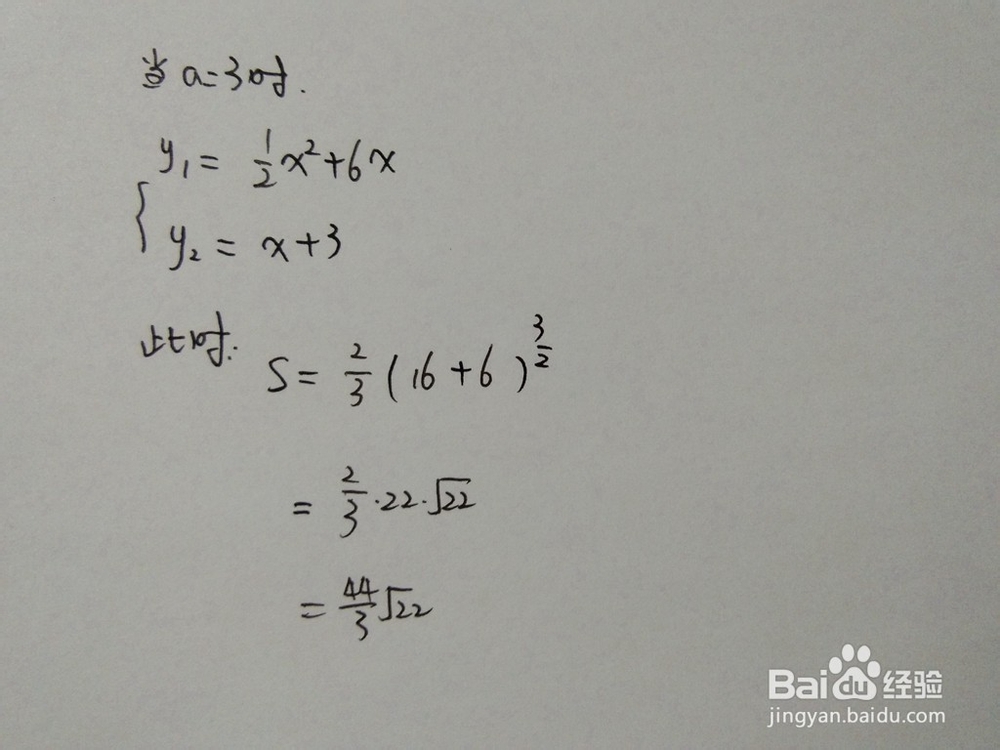 当a=3时.
y₁= ½x²+6x
{
y₂= x+3
此时:
S= 2/3(16+6)^(3/2)
= 2/3·22·√22
= 44/3√22
Bai du 经验
jingyan.baidu.com